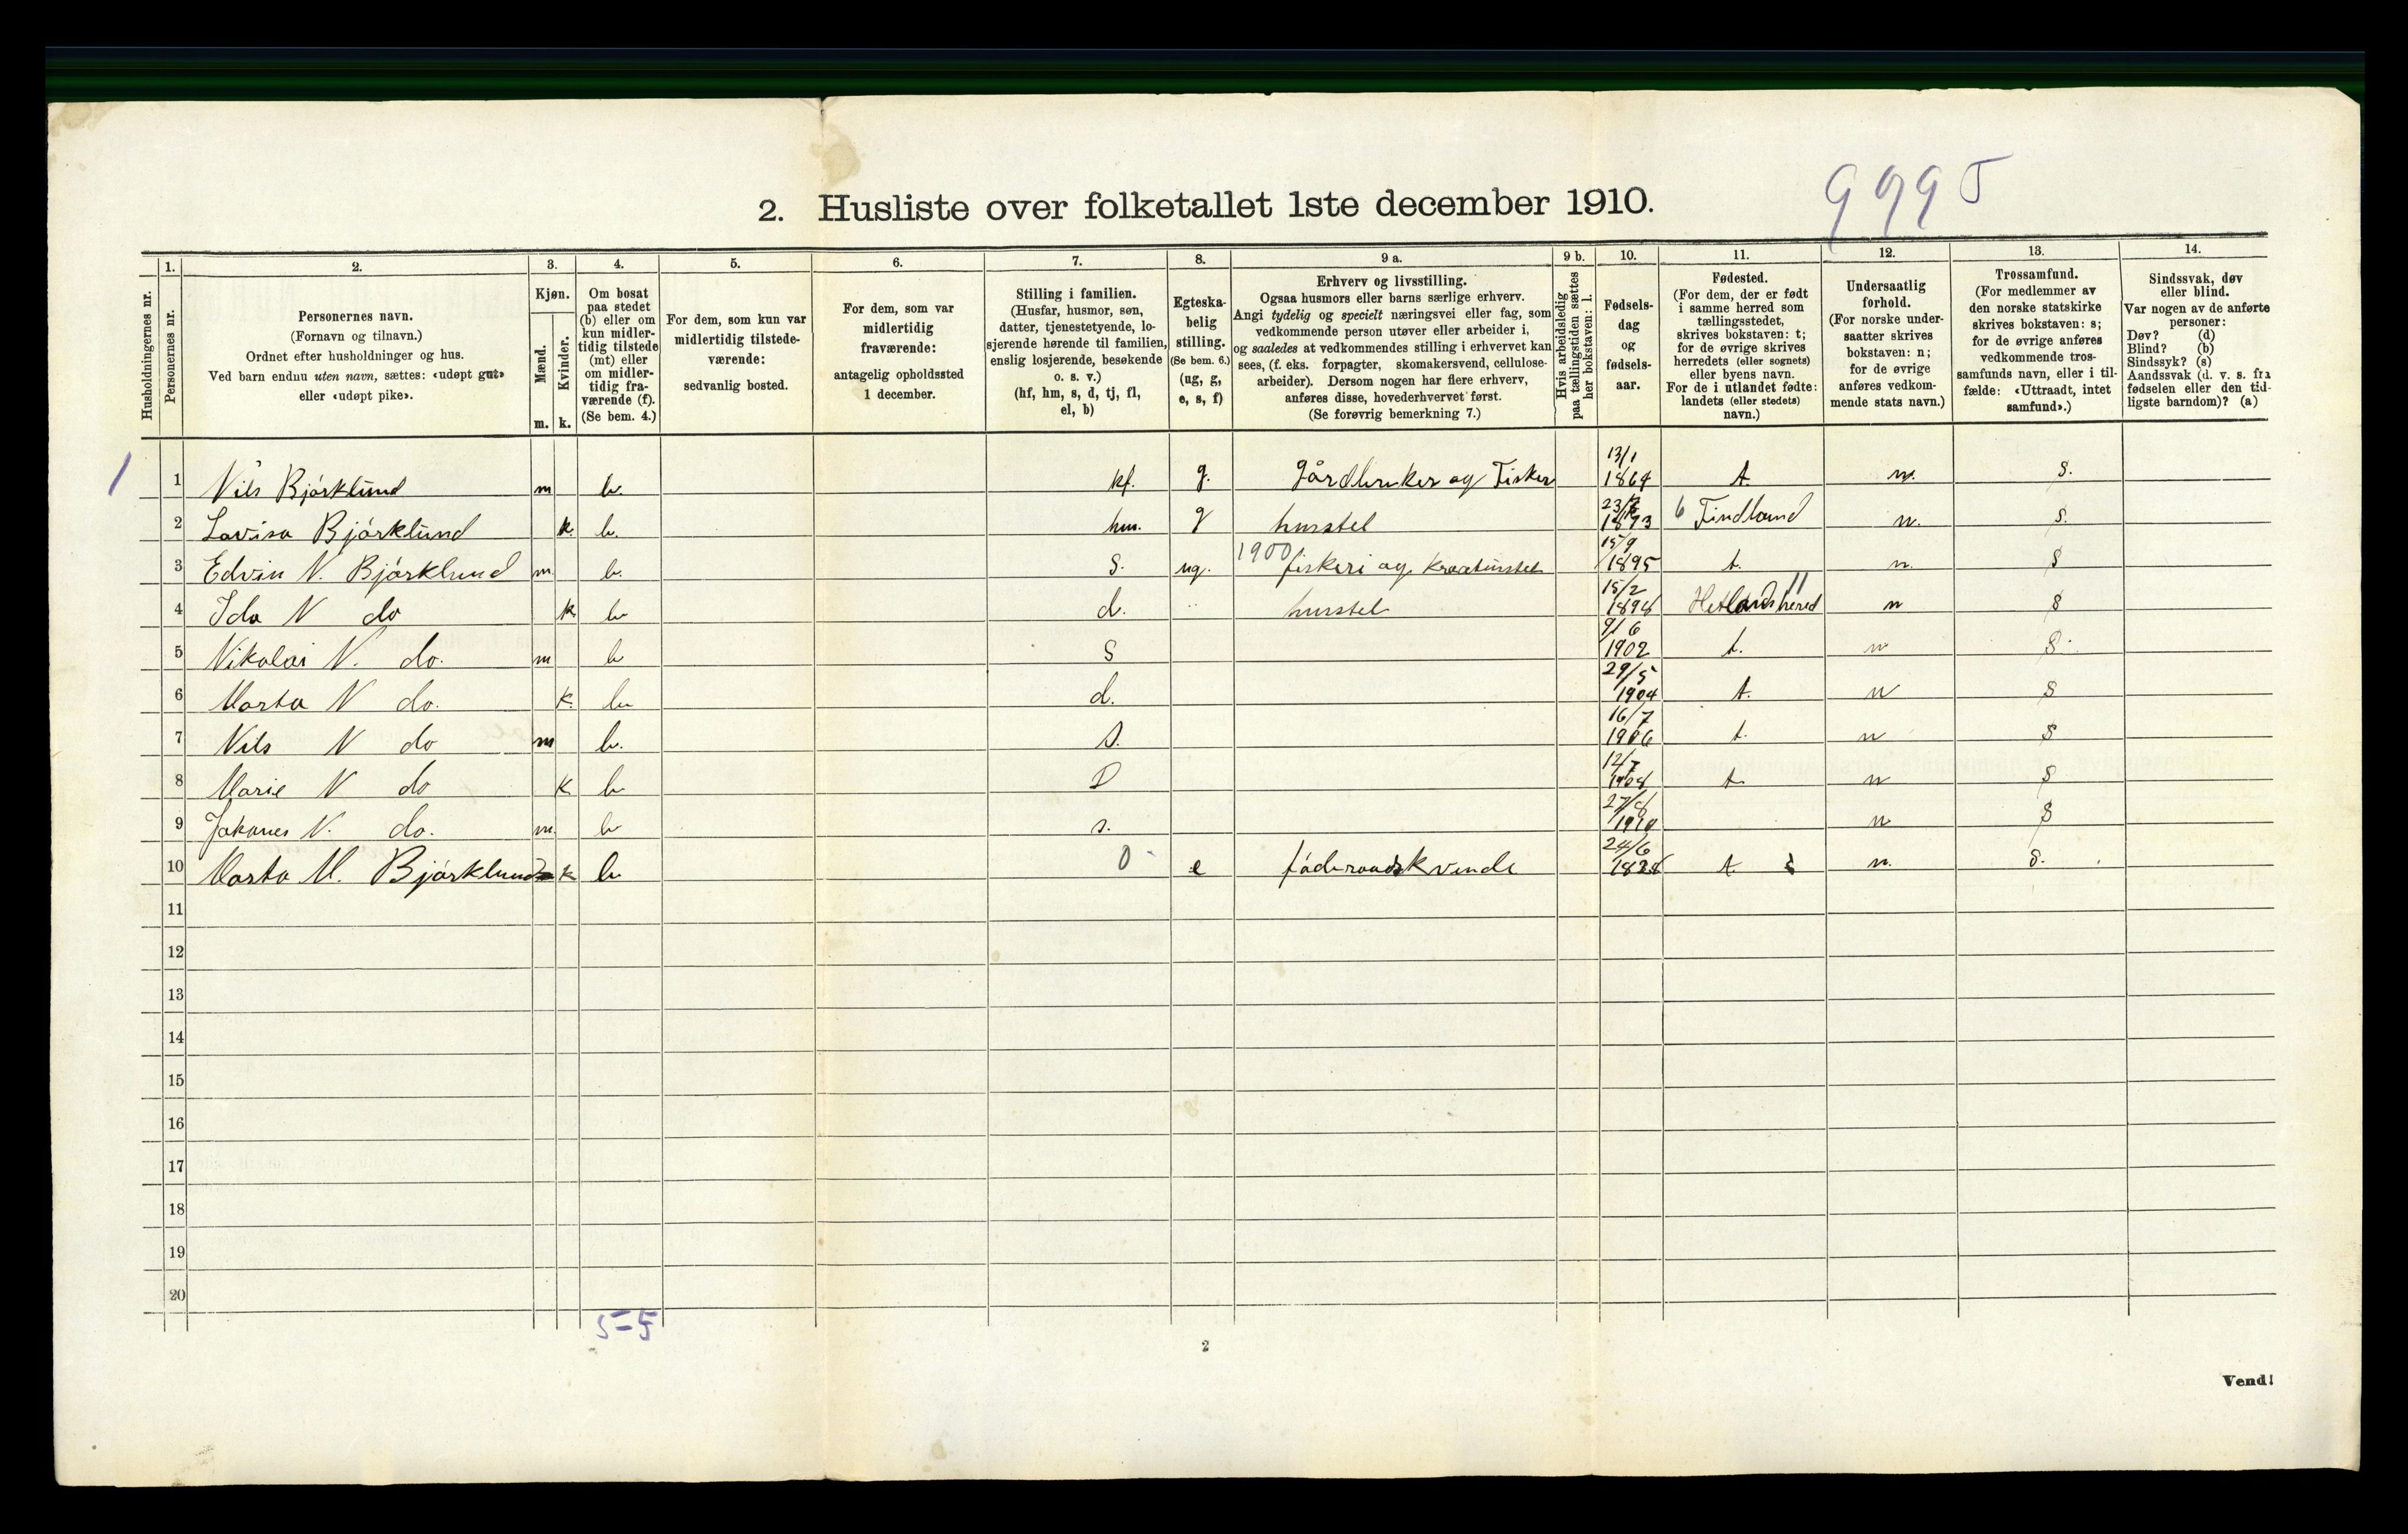 9995
2. Husliste over folketallet 1ste december 1910.
Husholdningernes nr.
1. Personernes nr.
2. Personernes navn.
(Fornavn og tilnavn.)
Ordnet efter husholdninger og hus.
Ved barn endnu uten navn, sættes: «udøpt gut»
eller «udøpt pike».
3. Kjøn.
Mænd. Kvinder.
m. k.
4. Om bosat
paa stedet
(b) eller om
kun midler-
tidig tilstede
(mt) eller
om midler-
tidig fra-
værende (f).
(Se bem. 4.)
5. For dem, som kun var
midlertidig tilstede-
værende:
sedvanlig bosted.
6. For dem, som var
midlertidig
fraværende:
antagelig opholdssted
1 december.
7. Stilling i familien.
(Husfar, husmor, søn,
datter, tjenestetyende, lo-
sjerende hørende til familien,
enslig losjerende, besøkende
o. s. v.)
(hf, hm, s, d, tj, fl,
el, b)
8. Egteska-
belig
stilling.
(Se bem. 6.)
(ug, g,
e, s, f)
9 a. Erhverv og livsstilling.
Ogsaa husmors eller barns særlige erhverv.
Angi tydelig og specielt næringsvei eller fag, som
vedkommende person utøver eller arbeider i,
og saaledes at vedkommendes stilling i erhvervet kan
sees, (f. eks. forpagter, skomakersvend, cellulose-
arbeider). Dersom nogen har flere erhverv,
anføres disse, hovederhvervet først.
(Se forøvrig bemerkning 7.)
9 b. Hvis arbeidsledig
paa tællingstiden sættes
her bokstaven: l.
10. Fødsels-
dag
og
fødsels-
aar.
11. Fødested.
(For dem, der er født
i samme herred som
tællingsstedet,
skrives bokstaven: t;
for de øvrige skrives
herredets (eller sognets)
eller byens navn.
For de i utlandet fødte:
landets (eller stedets)
navn.)
12. Undersaatlig
forhold.
(For norske under-
saatter skrives
bokstaven: n;
for de øvrige
anføres vedkom-
mende stats navn.)
13. Trossamfund.
(For medlemmer av
den norske statskirke
skrives bokstaven: s;
for de øvrige anføres
vedkommende tros-
samfunds navn, eller i til-
fælde: «Uttraadt, intet
samfund».)
14. Sindssvak, døv
eller blind.
Var nogen av de anførte
personer:
Døv? (d)
Blind? (b)
Sindssyk? (s)
Aandssvak (d. v. s. fra
fødselen eller den tid-
ligste barndom)? (a)
1 1 Nils Björklund m b. hf. g. Gårdbruker og Fisker 13/1 1864 t n. s.
2 Lovisa Björklund k. b. hm. g husstel 1873 6 Findland n. s.
3 Edvin N. Björklund m. b. s. ug. 1900 fiskeri og 15/9 1895 t. n. s
4 Ida N do k b d. husstel 15/2 1898 Hetlands herred 11 n s
5 Nikolai N. do. m b s 9/6 1902 t. n s.
6 Marta N do. k. b d. 29/5 1904 t. n s
7 Nils N do m b. s. 16/7 1906 t. n s
8 Marie N do k b D 12/7 1908 t n s
9 Johanes N. do. m. b s. 27/8 1910 n s
10 Marta M. Björklund k b 0 e föderaadskvinde 24/6 t. n. s.
11
12
13
14
15
16
17
18
19
20
5-5
2
Vend!